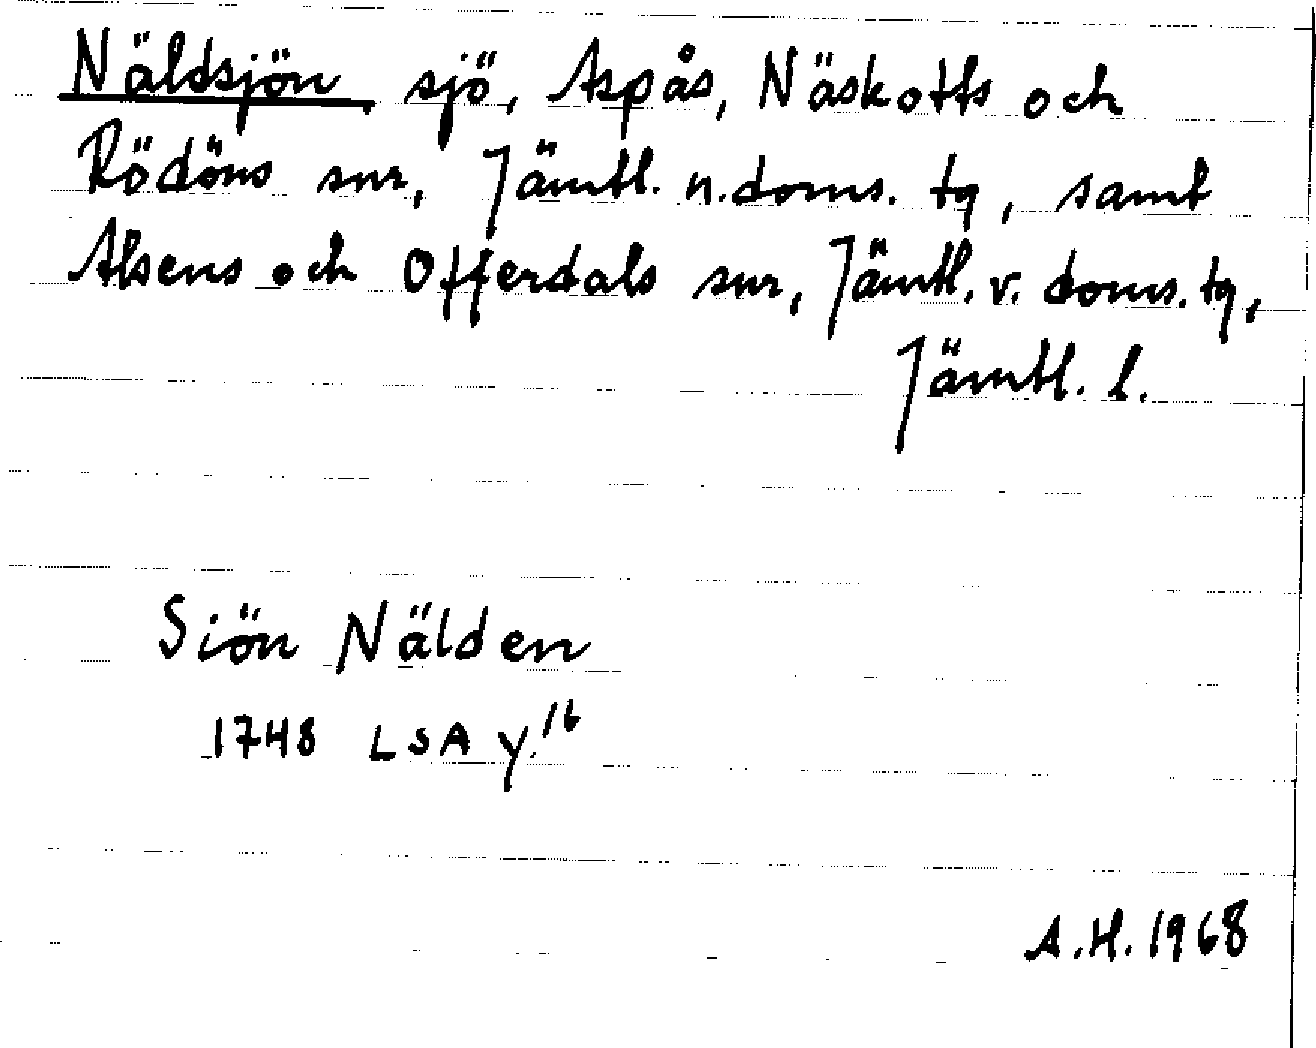 Näldsjön sjö, Aspås, Näskotts och
Rödöns snr, Jämtl. n. doms. tg, samt
Alsens och Offerdals snr, Jämtl. v. doms. tg,
Jämtl. l.
Siön Nälden
1748 LSA Y. 16
A.H. 1968